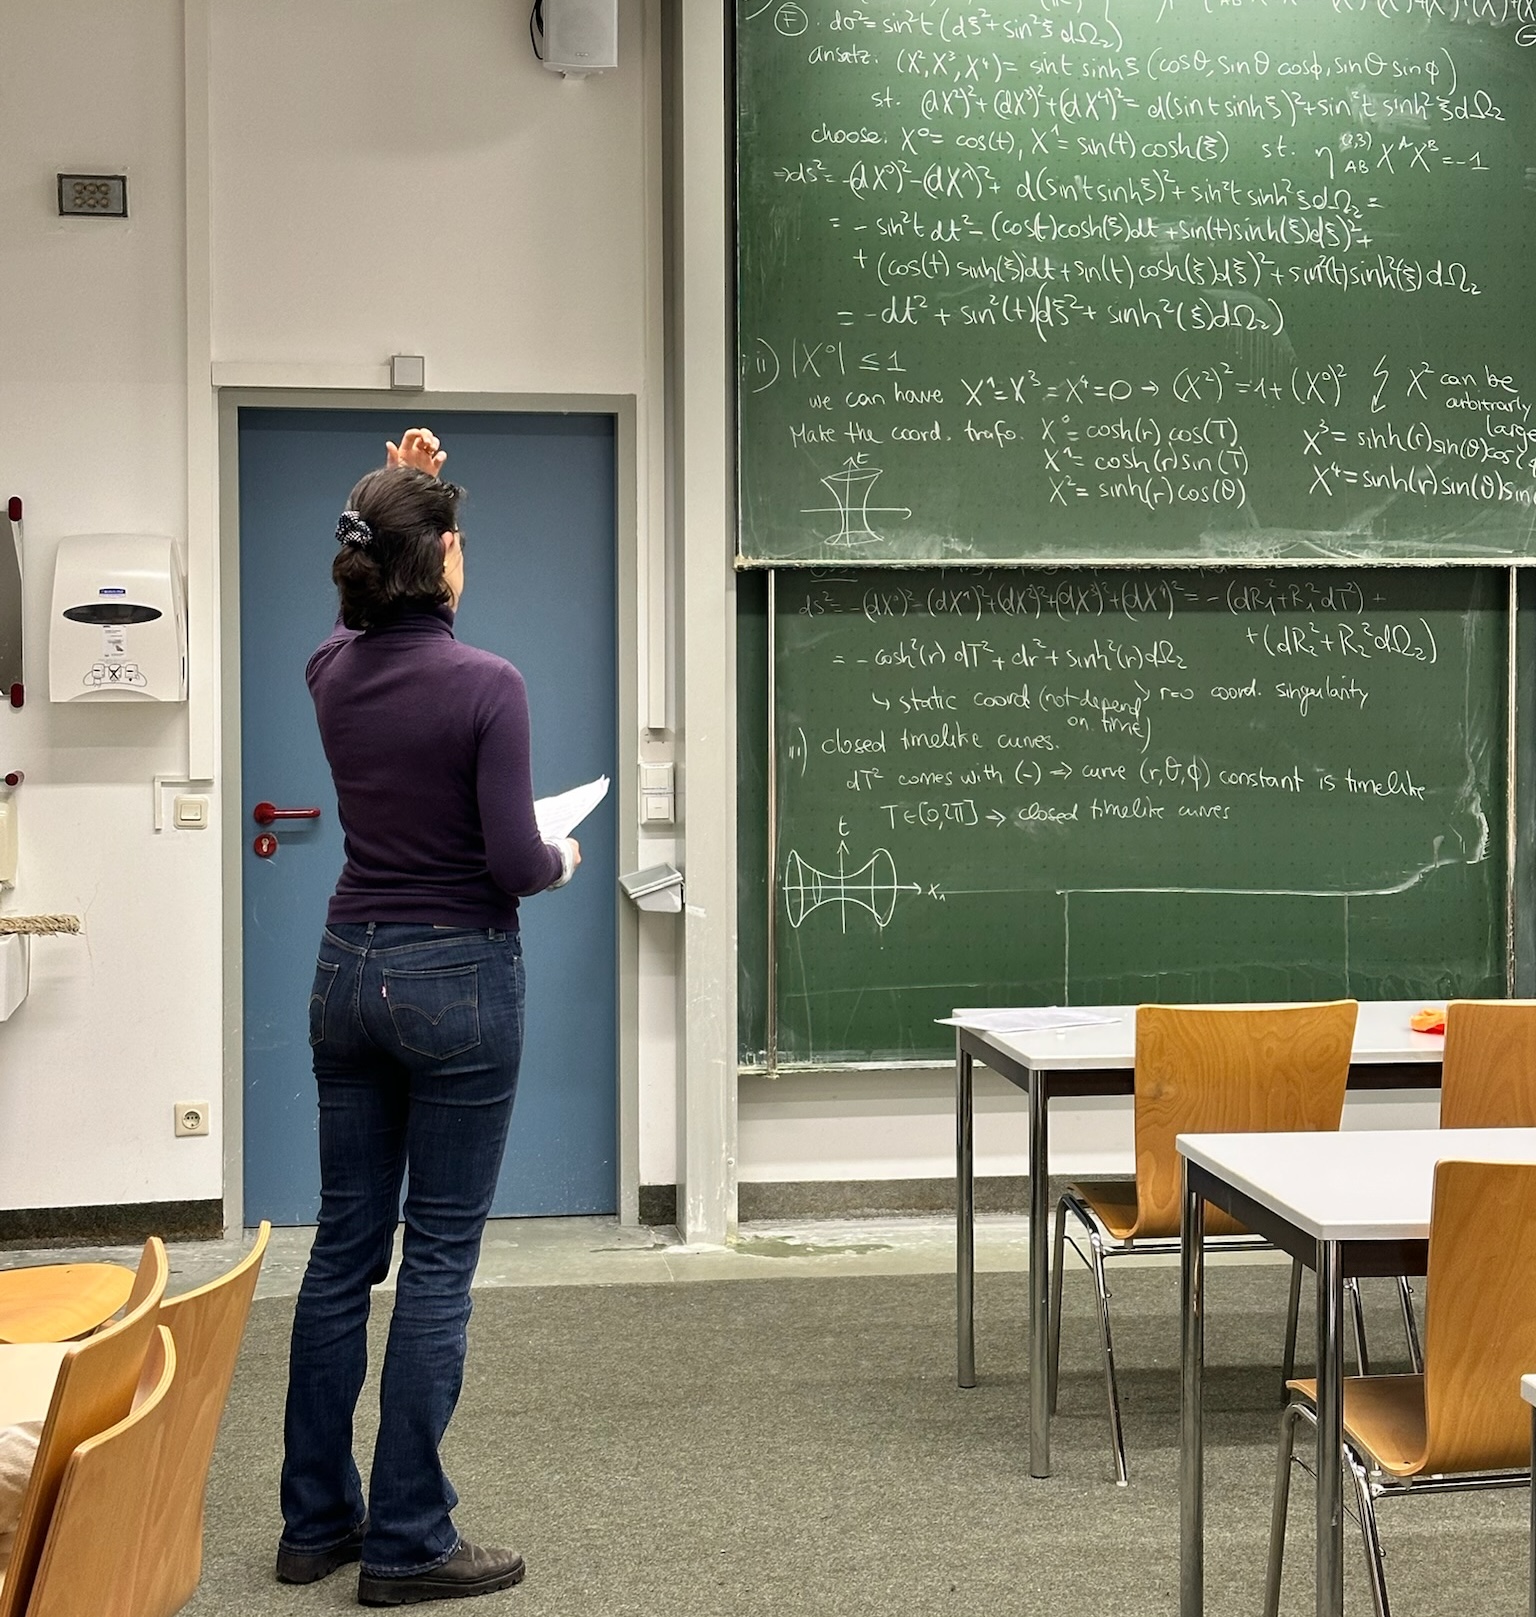 (F). dσ² = sin²t (dξ² + sin²ξ dΩ₂)
ansatz: (X², X³, X⁴) = sint sinhξ (cosθ, sinθ cosϕ, sinθ sinϕ)
st. (dX²)² + (dX³)² + (dX⁴)² = d(sint sinhξ)² + sin²t sinh²ξ dΩ₂
choose: X⁰ = cos(t), X¹ = sin(t) cosh(ξ) st. η^(2,3)_AB X^A X^B = -1
⇒ ds² = -(dX⁰)² - (dX¹)² + d(sint sinhξ)² + sin²t sinh²ξ dΩ₂ =
= - sin²t dt² - (cos(t)cosh(ξ)dt + sin(t)sinh(ξ)dξ)² +
+ (cos(t) sinh(ξ)dt + sin(t) cosh(ξ)dξ)² + sin²(t)sinh²(ξ)dΩ₂
= -dt² + sin²(t)(dξ² + sinh²(ξ)dΩ₂)
ii) |X⁰| ≤ 1
we can have X¹ = X³ = X⁴ = 0 → (X²)² = 1 + (X⁰)² ↯ X² can be
arbitrarly
large
Make the coord. trafo. X⁰ = cosh(r) cos(T)
X¹ = cosh(r) sin(T)
X² = sinh(r) cos(θ)
X³ = sinh(r) sin(θ) cos(
X⁴ = sinh(r) sin(θ) sin
t
ds² = -(dX⁰)² - (dX¹)² + (dX²)² + (dX³)² + (dX⁴)² = - (dR₁² + R₁² dT²) +
+ (dR₂² + R₂² dΩ₂)
= - cosh²(r) dT² + dr² + sinh²(r) dΩ₂
↳ static coord (not depend on time)
↘ r=0 coord. singularity
iii) closed timelike curves.
dT² comes with (-) ⇒ curve (r,θ,ϕ) constant is timelike
T∈[0,2π] ⇒ closed timelike curves
t
X₁